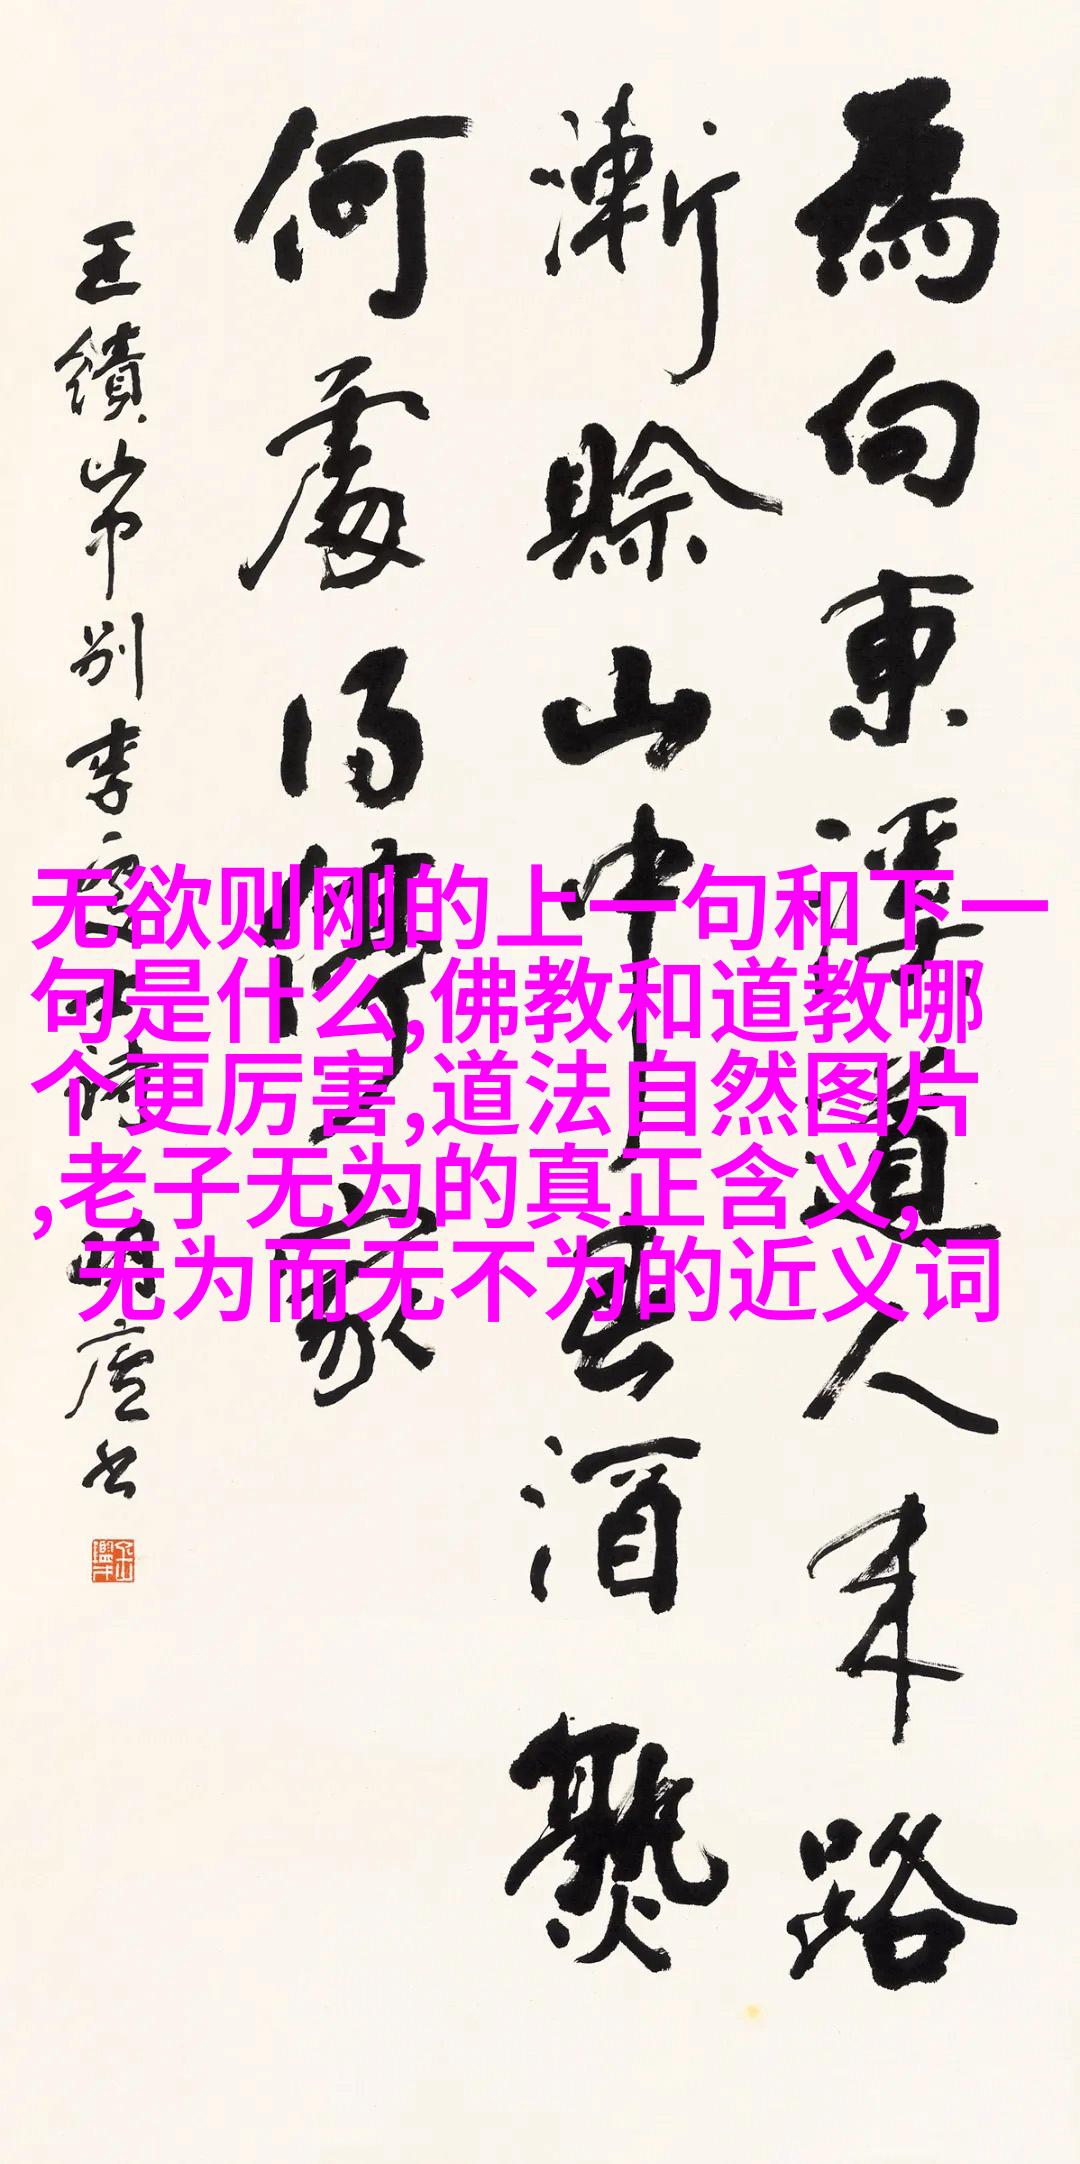 為向東溪道人来路
漸賒山中春酒熟
何處得停家
王績山中別李處士詩明廬书
无欲则刚的上一句和下一
句是什么,佛教和道教哪
个更厉害,道法自然图片
,老子无为的真正含义,
无为而无不为的近义词